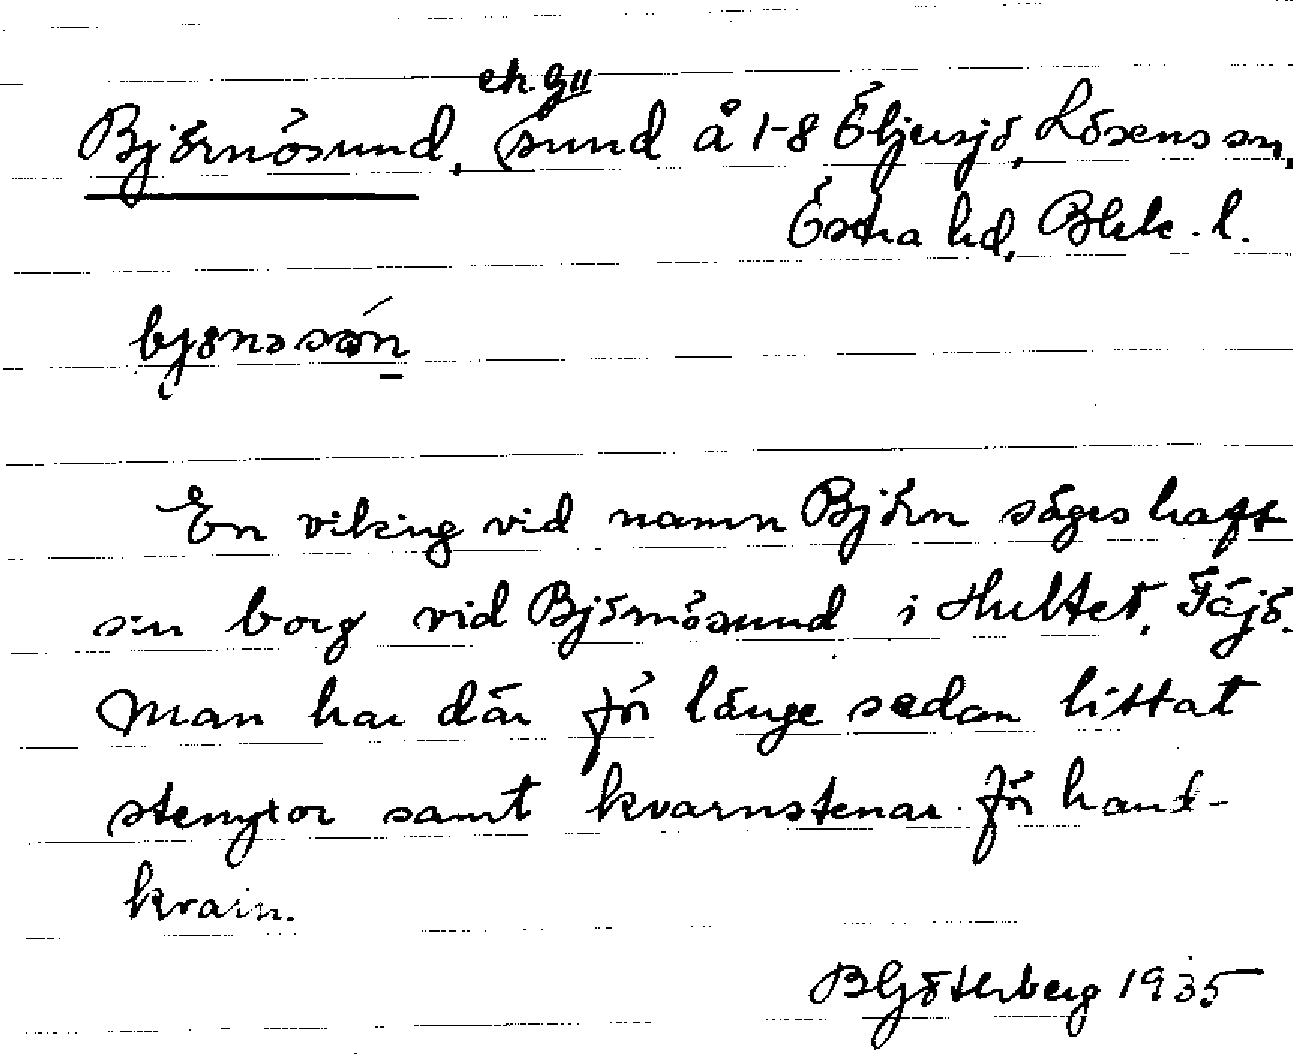 ek. g11
Björnösund, sund å 1-8 Öljersjö, Lösens sn,
Östra hd, Blek. l.
En viking vid namn Björn säges haft
sin borg vid Björnösund i Hultet, Fäjö.
Man har där för länge sedan hittat
stenyxor samt kvarnstenar för hand-
kvarn.
B Göterberg 1935